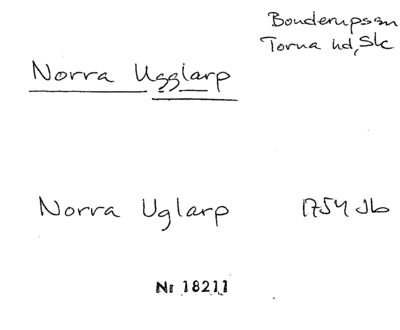 Bonderups sn
Torna hd, Sk
Norra Ugglarp
Norra Uglarp 1754 Jb
Nr 18211